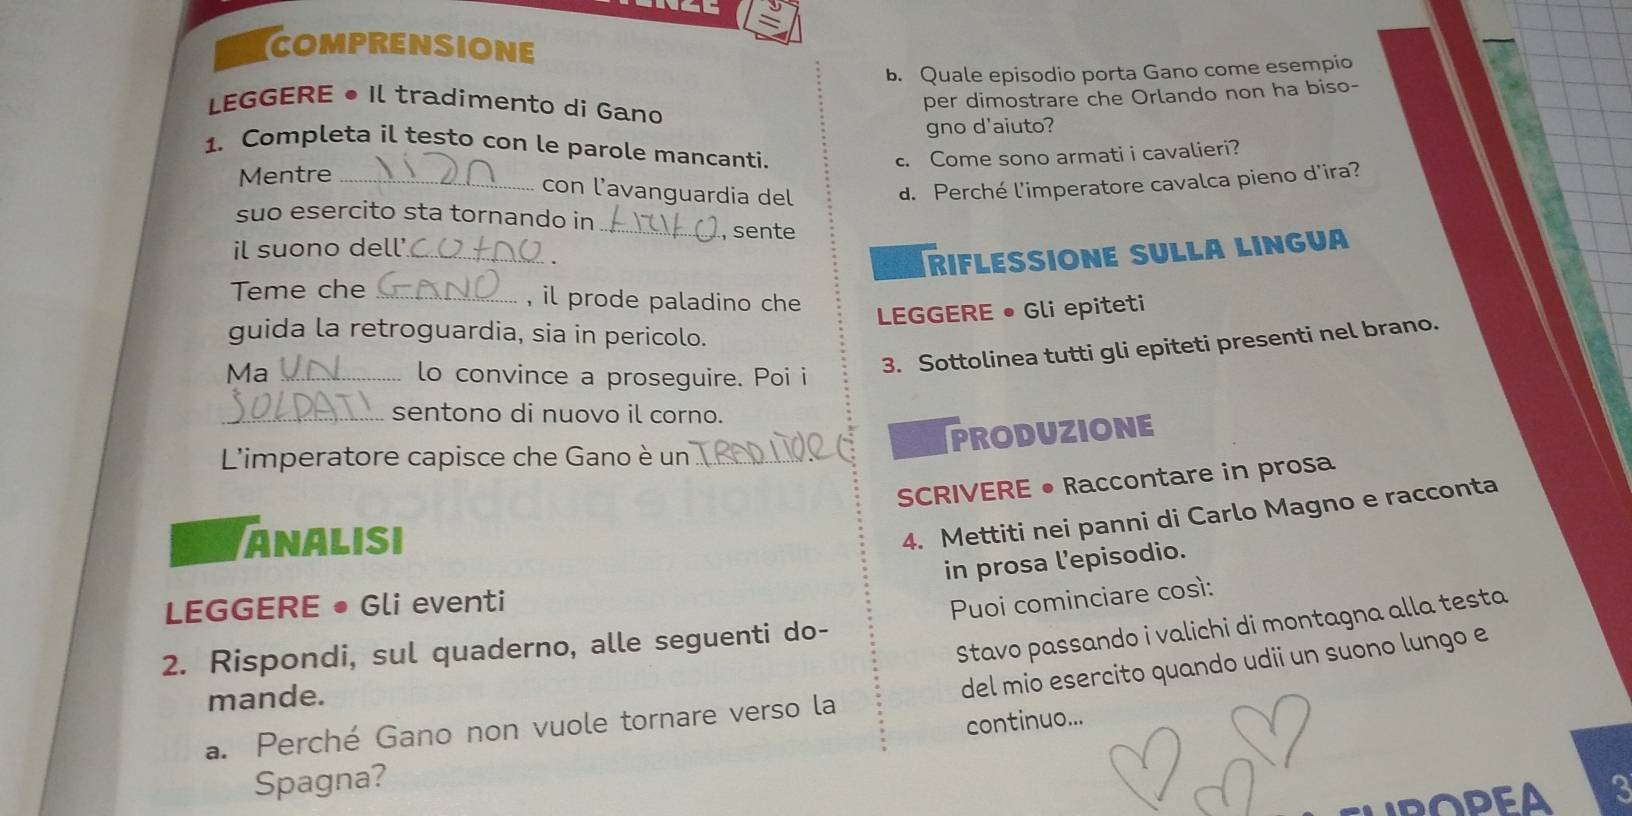 COMPRENSIONE
LEGGERE • Il tradimento di Gano
1. Completa il testo con le parole mancanti.
Mentre con l'avanguardia del
suo esercito sta tornando in , sente
il suono dell' .
Teme che GANO , il prode paladino che
guida la retroguardia, sia in pericolo.
Ma UN lo convince a proseguire. Poi i
SOLDATI sentono di nuovo il corno.
L'imperatore capisce che Gano è un TRADITORE.
ANALISI
LEGGERE • Gli eventi
2. Rispondi, sul quaderno, alle seguenti do-
mande.
a. Perché Gano non vuole tornare verso la
Spagna?
b. Quale episodio porta Gano come esempio
per dimostrare che Orlando non ha biso-
gno d'aiuto?
c. Come sono armati i cavalieri?
d. Perché l'imperatore cavalca pieno d'ira?
RIFLESSIONE SULLA LINGUA
LEGGERE • Gli epiteti
3. Sottolinea tutti gli epiteti presenti nel brano.
PRODUZIONE
SCRIVERE • Raccontare in prosa
4. Mettiti nei panni di Carlo Magno e racconta
in prosa l'episodio.
Puoi cominciare così:
Stavo passando i valichi di montagna alla testa
del mio esercito quando udii un suono lungo e
continuo...
EUROPEA